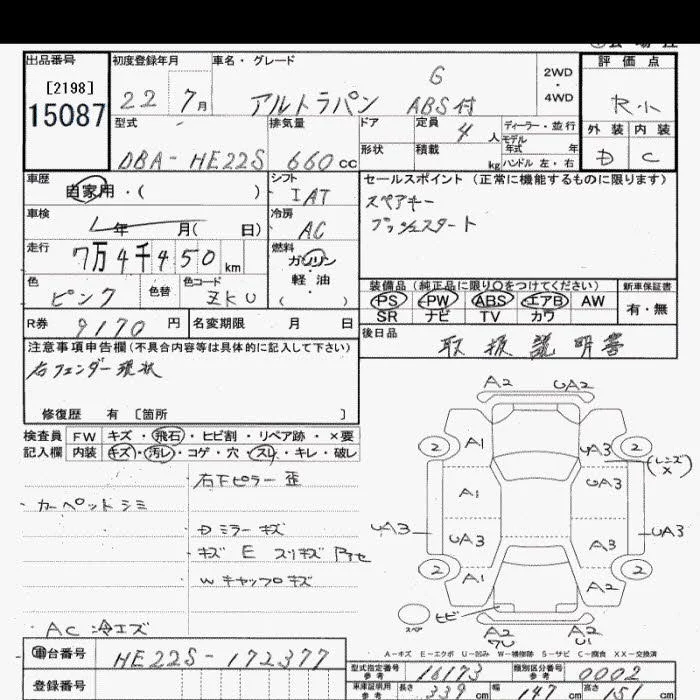 出品番号
[2198]
15087
初度登録年月
22 7月
車名・グレード
アルトラパン G ABS付
2WD
・
4WD
評価点
R小
外装 内装
D C
型式
DBA-HE22S
排気量
660cc
ドア
定員 4人
形状
積載 kg
ディーラー・並行
モデル年式 年
ハンドル 左・右
車歴
自家用・( )
車検
年 月( 日)
走行
7万4千450km
色
ピンク
色替
色コード
ZKU
シフト
IAT
冷房
AC
燃料
ガソリン
・
軽油
( )
セールスポイント (正常に機能するものに限ります)
スペアキー
プッシュスタート
装備品(純正品に限り○をつけてください)
PS PW ABS エアB AW
SR ナビ TV カワ
新車保証書
有・無
R券 9170円
名変期限 月 日
後日品
取扱説明書
注意事項申告欄(不具合内容等は具体的に記入して下さい)
右フェンダー現状
修復歴 有 [箇所 ]
検査員 FW キズ・飛石・ヒビ割・リペア跡・×要
記入欄 内装 キズ・汚レ・コゲ・穴・スレ・キレ・破レ
右下ピラー歪
カーペットシミ
Dミラーキズ
キズ E スリキズ
Wキャップキズ
AC 冷エズ
A2 UA2
2 A1 UA3 2
(レンズ×)
A1 UA3
UA3 UA3 A3 UA3
2 A1 A2 2
スペア
ヒビ
A2 A2
A-キズ E-エクボ U-凹み W-補修跡 S-サビ C-腐食 XX-交換済
車台番号
HE22S-172377
登録番号
型式指定番号
参考
16173
類別区分番号
参考
0002
車庫証明用
参考
長さ 339cm
幅 147cm
高さ 151cm